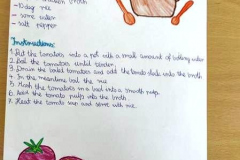 - 10 dag rice
- some water
- salt, pepper
Instructions:
1. Put the tomatoes into a pot with a small amount of boiling water
2. Boil the tomatoes until tender.
3. Drain the boiled tomatoes and add the tomato stock into the broth.
4. In the meantime boil the rice
5. Mash the tomatoes in a bowl into a smooth pulp.
6. Add the tomato pulp into the broth.
7. Heat the tomato soup and serve with rice.